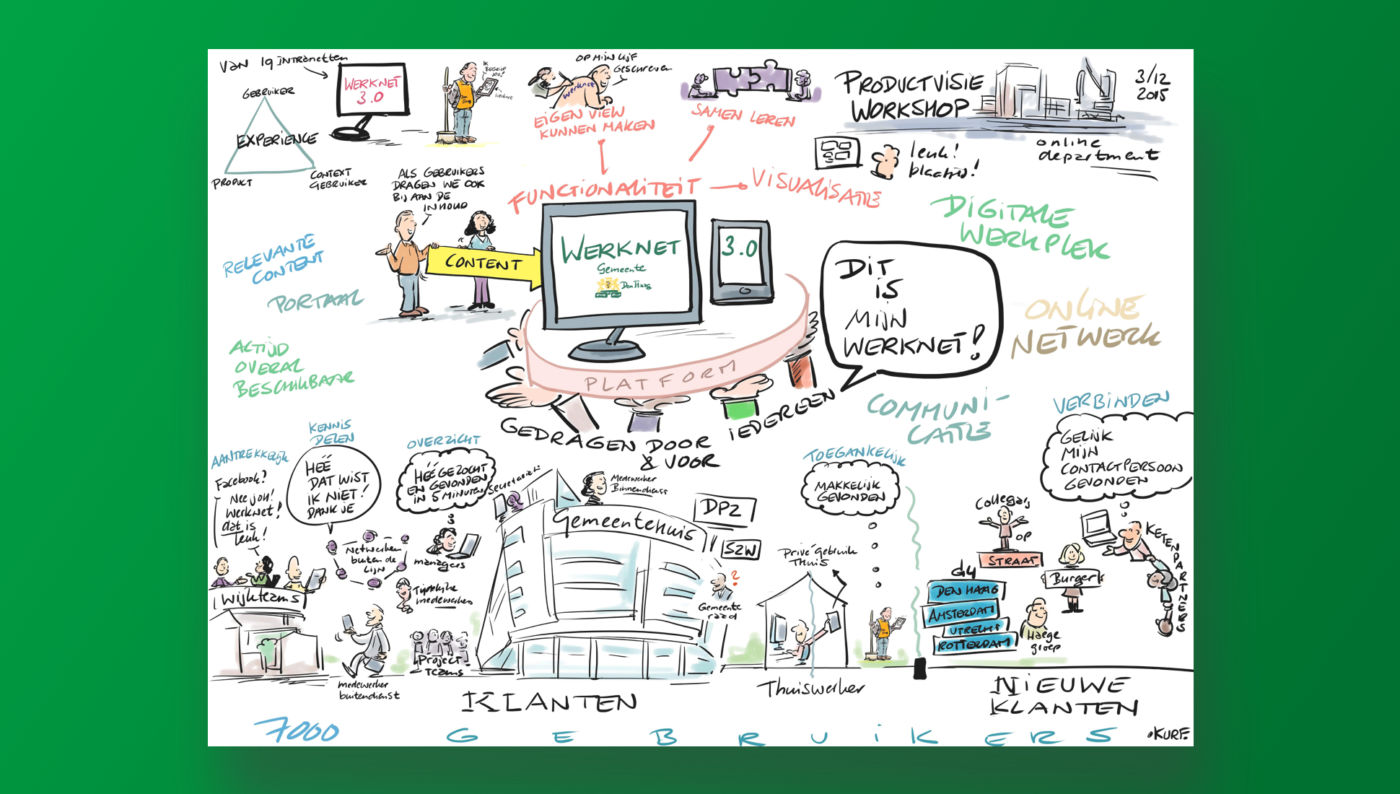 Van 19 intranetten
WERKNET
3.0
GEBRUIKER
EXPERIENCE
PRODUCT
CONTEXT
GEBRUIKER
OP MIJN LIJF
Geschreven
Werknet
EIGEN VIEW
KUNNEN MAKEN
SAMEN LEREN
PRODUCTVISIE
WORKSHOP
3/12
2015
online
department
leuk!
FUNCTIONALITEIT
VISUALISATIE
ALS GEBRUIKERS
DRAGEN WE OOK
BIJ AAN DE
INHOUD
CONTENT
WERKNET
Gemeente
Den Haag
3.0
PLATFORM
GEDRAGEN DOOR
& VOOR
IEDEREEN
DIT
IS
MIJN
WERKNET!
DIGITALE
WERKPLEK
ONLINE
NETWERK
COMMUNI-
CATIE
RELEVANTE
CONTENT
PORTAAL
ALTIJD
OVERAL
BESCHIKBAAR
AANTREKKELIJK
Facebook?
Nee joh!
Werknet!
dat is
leuk!
Wijkteams
KENNIS
DELEN
HÉÉ
DAT WIST
IK NIET!
DANK JE
Netwerken
buiten de
lijn
OVERZICHT
HÉÉ GEZOCHT
EN GEVONDEN
IN 5 MINUTEN
managers
Tijdelijke
medewerkers
Project
Teams
medewerker
buitendienst
Secretariaat
Medewerker
Binnendienst
Gemeentehuis
DPZ
SZW
?
Gemeente
raad
TOEGANKELIJK
MAKKELIJK
GEVONDEN
Privé Gebruik
Thuis
Thuiswerker
VERBINDEN
GELIJK
MIJN
CONTACTPERSOON
GEVONDEN
Collega's
OP
STRAAT
Burgers
KETENPARTNERS
G4
DEN HAAG
AMSTERDAM
UTRECHT
ROTTERDAM
Haagse
groep
KLANTEN
NIEUWE
KLANTEN
7000
GEBRUIKERS
KURF.